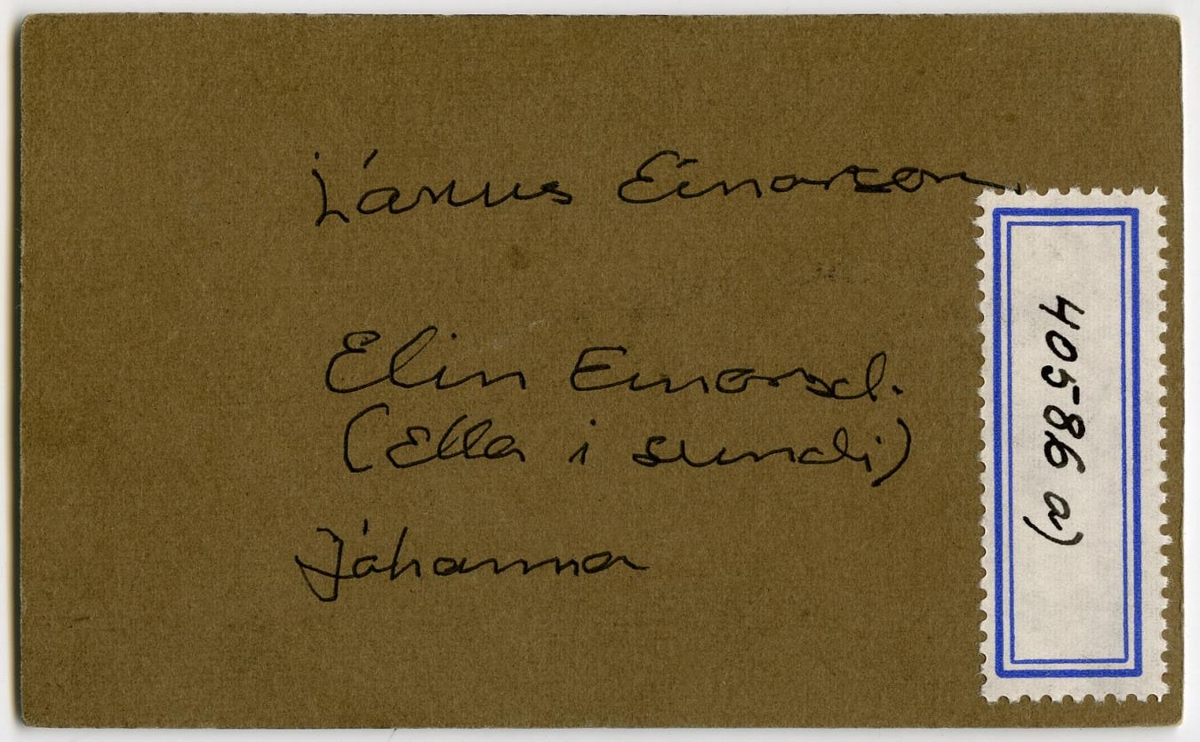 Lárus Einarson.
Elin Einarsd.
(Ella i sundi)
Jóhanna
40586 a)